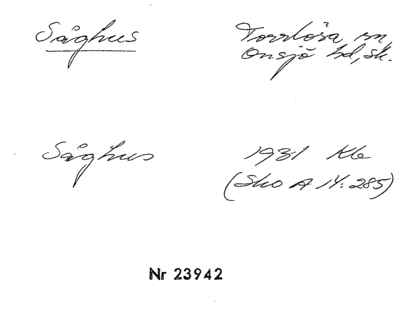 Såghus Torrlösa sn,
Onsjö hd, Sk.
Såghus 1931 Kle
(Sko A 14: 285)
Nr 23942